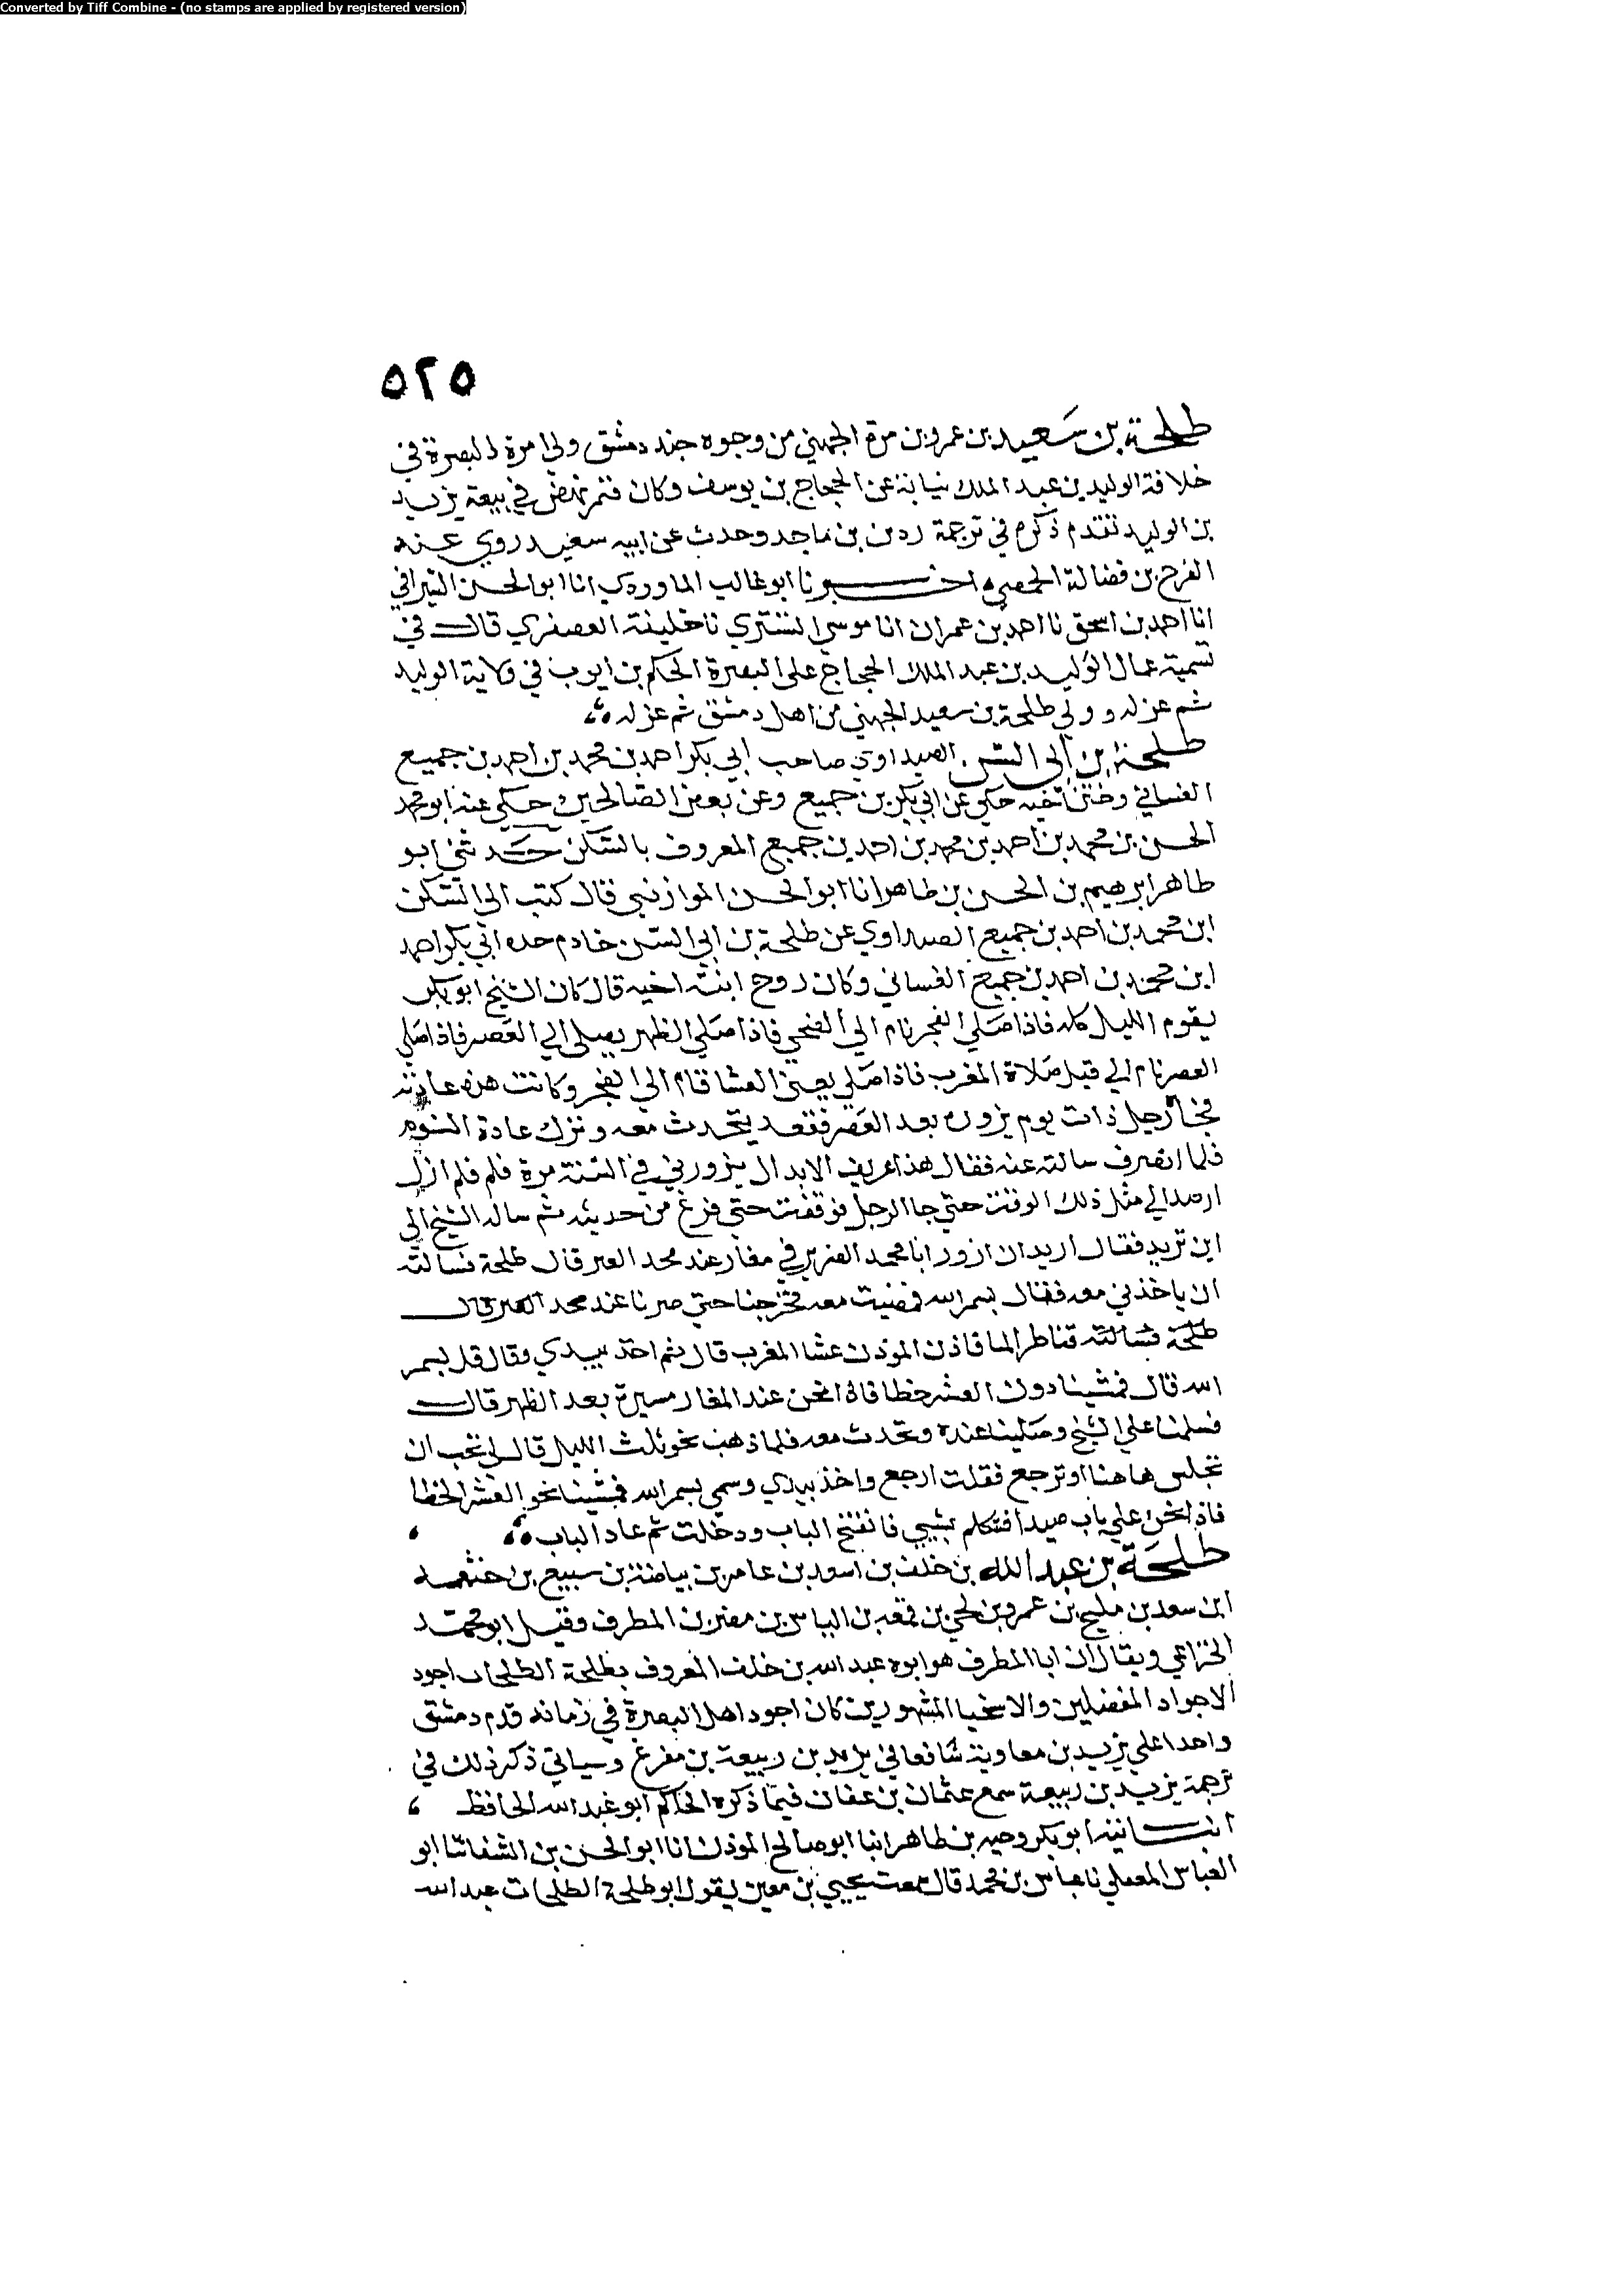 Converted by Tiff Combine - (no stamps are applied by registered version)
٥٢٥
طلحة بن سعيد بن عمرو بن مرة الجهني من وجوه جند دمشق ولي امرة البصرة في
خلافة الوليد بن عبد الملك نيابة عن الحجاج بن يوسف وكان فتمر نهض في بيعة يزيد
بن الوليد تقدم ذكره في ترجمة ردىن بن ماجد وحدث عن ابيه سعيد روي عنه
الفرج بن فضالة الحمصي اخبرنا ابو غالب الماوردي انا ابو الحسن السيرافي
انا احمد بن اسحق نا احمد بن عمران انا موسى التستري نا خليفة العصفري قال في
تسمية عمال الوليد بن عبد الملك الحجاج على البصرة الحكم بن ايوب في ولاية الوليد
ثم عزله وولي طلحة بن سعيد الجهني من اهل دمشق ثم عزله
طلحة بن ابي السن الصيداوي صاحب ابي بكر احمد بن محمد بن احمد بن جميع
الغساني وختن اخيه حكي عن ابي بكر بن جميع وعن بعض الصالحين حكي عنه ابو محمد
الحسن بن محمد بن احمد بن محمد بن احمد بن جميع المعروف بالسكن حدثني ابو
طاهر ابرهيم بن الحسن بن طاهر انا ابو الحسن الموازيني قال كتب الي السكن
ابن محمد بن احمد بن جميع الصيداوي عن طلحة بن ابي السن خادم جده ابي بكر احمد
ابن محمد بن احمد بن جميع الغساني وكان زوج ابنة اخيه قال كان الشيخ ابو بكر
يقوم الليل كله فاذا صلي الفجر نام الي الضحي فاذا صلي الظهر يصلي الي العصر فاذا صلي
العصر نام الي قبل صلاة المغرب فاذا صلي يعني العشا قام الي الفجر وكانت هذه عادته
فجا رجل ذات يوم يزوره بعد العصر فقعد يتحدث معه وترك عادة النوم
فلما انصرف سالته عنه فقال هذا عريف الابدال يزورني في السنة مرة فلم فلم ازل
ارصد الي مثل ذلك الوقت حتي جا الرجل فوقفت حتي فرغ من حديثه ثم ساله الشيخ الي
اين تريد فقال اريد ان ازور ابا محمد الضرير في مغار عند محد العىر قال طلحة فسالته
ان ياخذني معه فقال بسم الله فمضيت معه فخرجنا حتي صرنا عند محد العىر قال
طلحة فسالته قناطر الما فاذن الموذن عشا المغرب قال ثم اخذ بيدي وقال قل بسم
الله قال فمشينا دون العشر خطا فاذا نحن عند المغار مسيرة بعد الظهر قال
فسلمنا علي الشيخ وصلينا عنده وتحدث معه فلما ذهب نحو ثلث الليل قال لي تحب ان
تجلس هاهنا او ترجع فقلت ارجع واخذ بيدي وسمي بسم الله فمشينا نحو العشر الخطا
فاذا نحن علي باب صيدا فتكلم بشيي فانفتح الباب ودخلت ثم عاد الباب
طلحة بن عبد الله بن خلف بن اسعد بن عامر بن بياضة بن سبيع بن خثعمه
ابن سعد بن مليح بن عمرو بن لحي بن قمعه بن الياس بن مضر بن المطرف وقيل ابو محمد
الخزاعي ويقال ان ابا المطرف هو ابوه عبد الله بن خلف المعروف بطلحة الطلحات اجود
الاجواد المفضلين والاسخيا المشهورين كان اجود اهل البصرة في زمانه قدم دمشق
وافدا علي يزيد بن معاوية شافعا في يزيد بن ربيعة بن مفرغ وسياتي ذكر ذلك في
ترجمة يزيد بن ربيعة سمع عثمان بن عفان فيما ذكره الحاكم ابو عبد الله الحافظ
انبانيه ابو بكر وجيه بن طاهر انبا ابو صالح الموذن انا ابو الحسن بن السقا نا ابو
العباس المعقلي نا عباس بن محمد قال سمعت يحيي بن معين يقول ابو طلحة الطلحات عبد الله